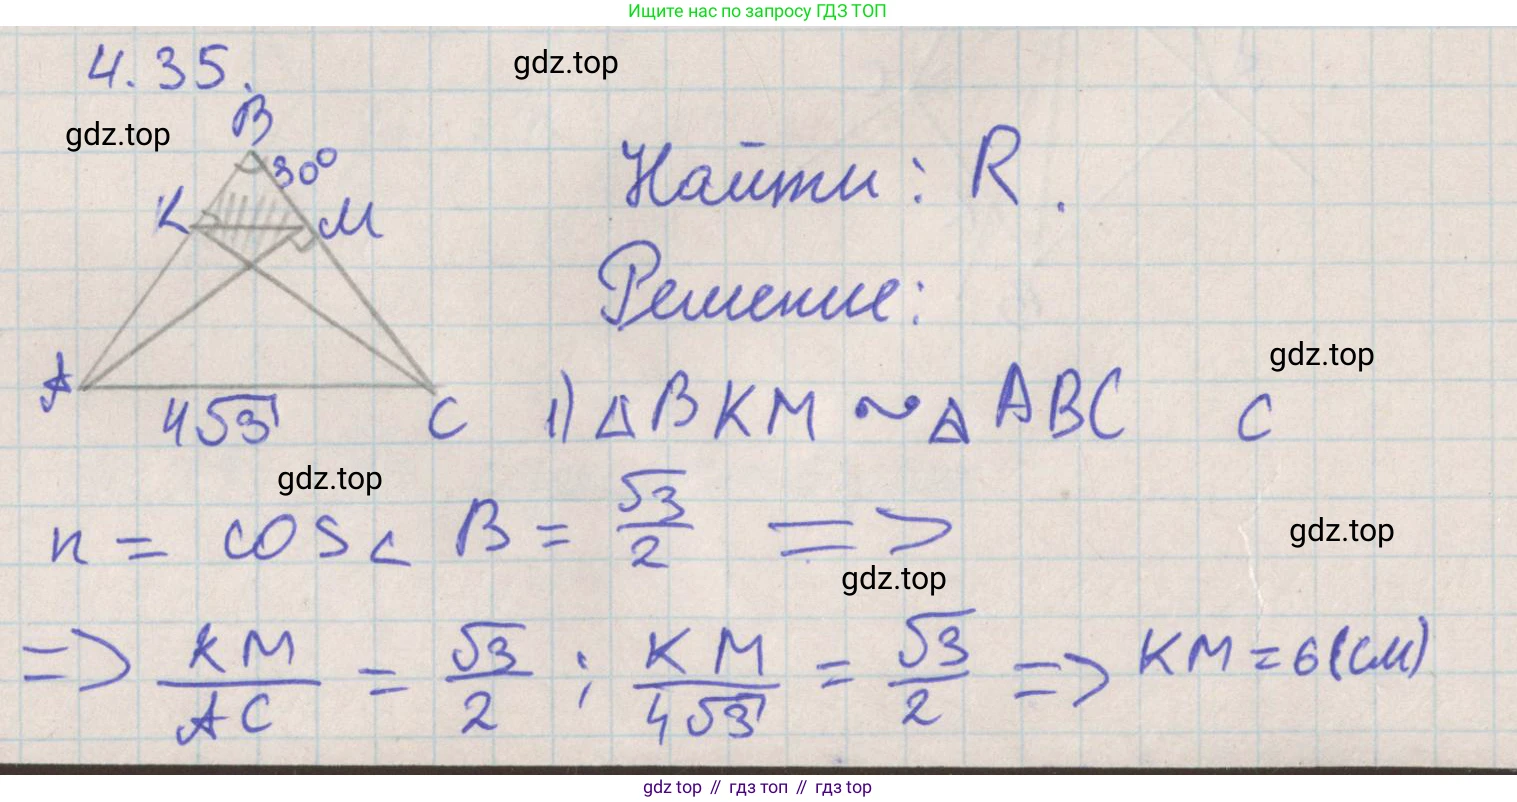 Ищите нас по запросу ГДЗ ТОП
4.35.
gdz.top
gdz.top
B
30°
K
M
Найти: R.
Решение:
gdz.top
A
4√3
C
1) △BKM ~ △ABC
C
gdz.top
к = cos ∠ B = √3/2 =>
gdz.top
gdz.top
=> KM/AC = √3/2 ; KM/4√3 = √3/2 => KM = 6(см)
gdz top // гдз топ // гдз top